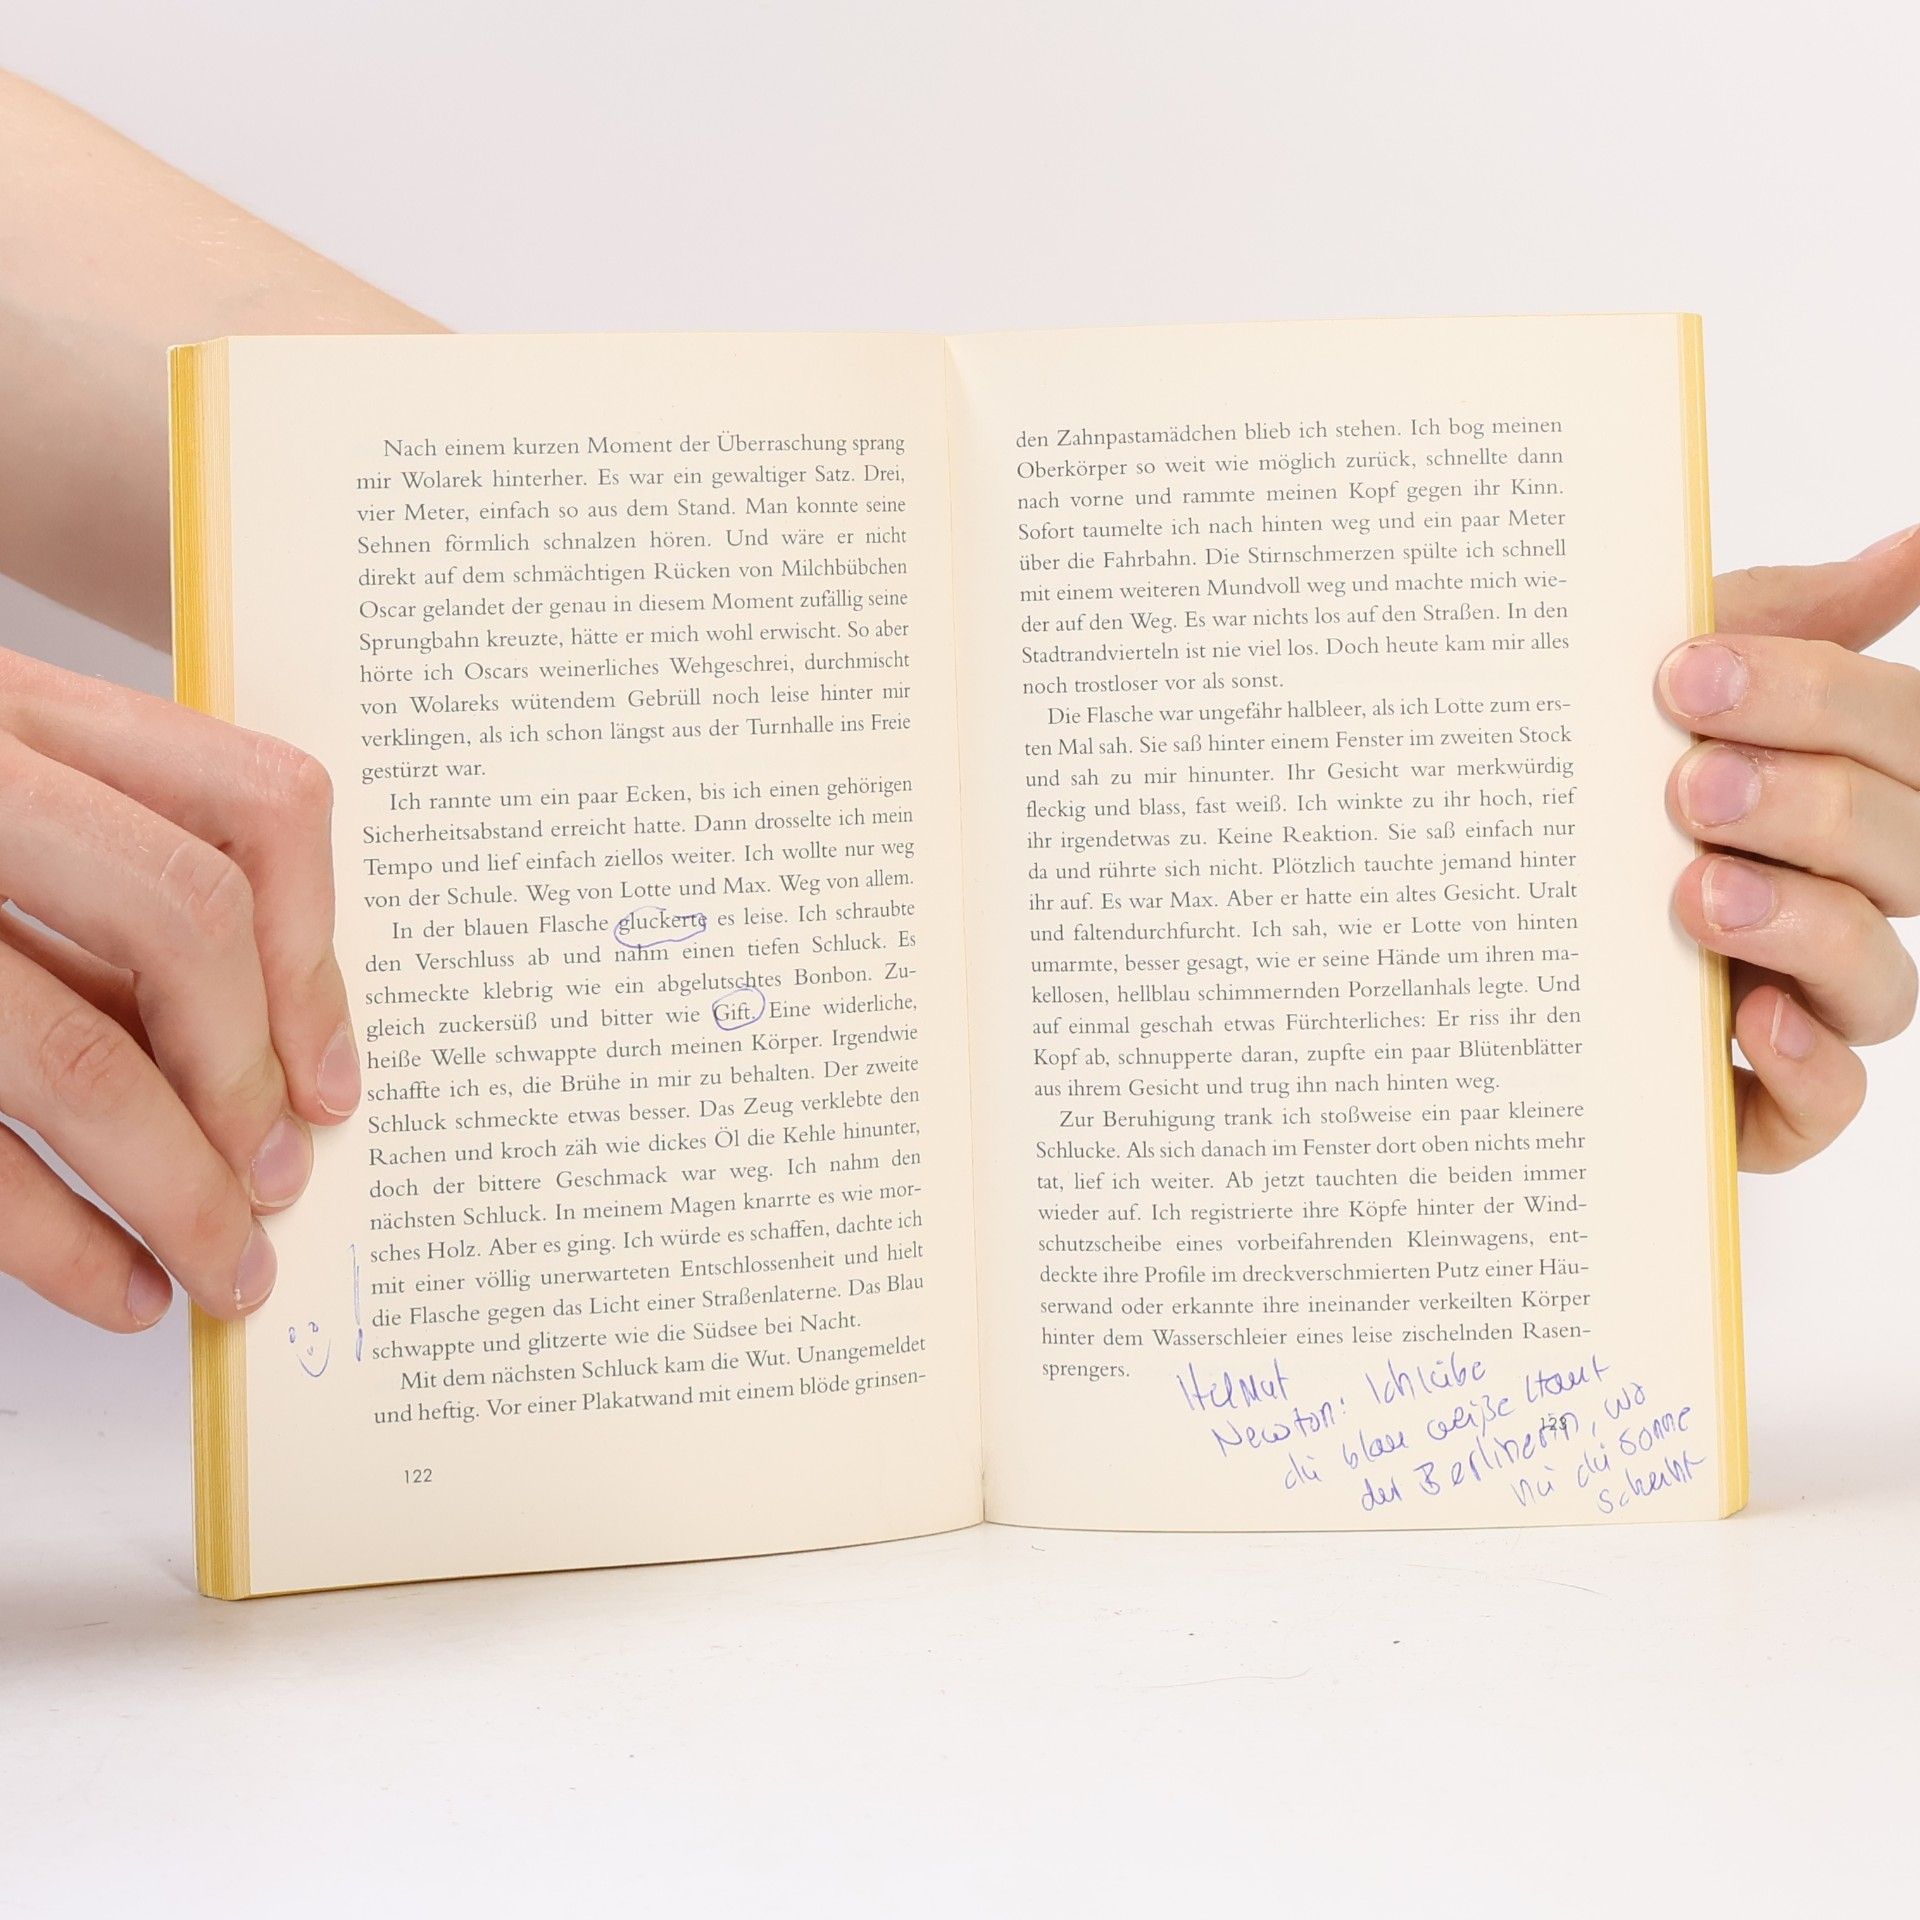 Nach einem kurzen Moment der Überraschung sprang
mir Wolarek hinterher. Es war ein gewaltiger Satz. Drei,
vier Meter, einfach so aus dem Stand. Man konnte seine
Sehnen förmlich schnalzen hören. Und wäre er nicht
direkt auf dem schmächtigen Rücken von Milchbübchen
Oscar gelandet der genau in diesem Moment zufällig seine
Sprungbahn kreuzte, hätte er mich wohl erwischt. So aber
hörte ich Oscars weinerliches Wehgeschrei, durchmischt
von Wolareks wütendem Gebrüll noch leise hinter mir
verklingen, als ich schon längst aus der Turnhalle ins Freie
gestürzt war.
Ich rannte um ein paar Ecken, bis ich einen gehörigen
Sicherheitsabstand erreicht hatte. Dann drosselte ich mein
Tempo und lief einfach ziellos weiter. Ich wollte nur weg
von der Schule. Weg von Lotte und Max. Weg von allem.
In der blauen Flasche gluckerte es leise. Ich schraubte
den Verschluss ab und nahm einen tiefen Schluck. Es
schmeckte klebrig wie ein abgelutschtes Bonbon. Zu-
gleich zuckersüß und bitter wie Gift. Eine widerliche,
heiße Welle schwappte durch meinen Körper. Irgendwie
schaffte ich es, die Brühe in mir zu behalten. Der zweite
Schluck schmeckte etwas besser. Das Zeug verklebte den
Rachen und kroch zäh wie dickes Öl die Kehle hinunter,
doch der bittere Geschmack war weg. Ich nahm den
nächsten Schluck. In meinem Magen knarrte es wie mor-
sches Holz. Aber es ging. Ich würde es schaffen, dachte ich
mit einer völlig unerwarteten Entschlossenheit und hielt
die Flasche gegen das Licht einer Straßenlaterne. Das Blau
schwappte und glitzerte wie die Südsee bei Nacht.
Mit dem nächsten Schluck kam die Wut. Unangemeldet
und heftig. Vor einer Plakatwand mit einem blöde grinsen-
122
den Zahnpastamädchen blieb ich stehen. Ich bog meinen
Oberkörper so weit wie möglich zurück, schnellte dann
nach vorne und rammte meinen Kopf gegen ihr Kinn.
Sofort taumelte ich nach hinten weg und ein paar Meter
über die Fahrbahn. Die Stirnschmerzen spülte ich schnell
mit einem weiteren Mundvoll weg und machte mich wie-
der auf den Weg. Es war nichts los auf den Straßen. In den
Stadtrandvierteln ist nie viel los. Doch heute kam mir alles
noch trostloser vor als sonst.
Die Flasche war ungefähr halbleer, als ich Lotte zum ers-
ten Mal sah. Sie saß hinter einem Fenster im zweiten Stock
und sah zu mir hinunter. Ihr Gesicht war merkwürdig
fleckig und blass, fast weiß. Ich winkte zu ihr hoch, rief
ihr irgendetwas zu. Keine Reaktion. Sie saß einfach nur
da und rührte sich nicht. Plötzlich tauchte jemand hinter
ihr auf. Es war Max. Aber er hatte ein altes Gesicht. Uralt
und faltendurchfurcht. Ich sah, wie er Lotte von hinten
umarmte, besser gesagt, wie er seine Hände um ihren ma-
kellosen, hellblau schimmernden Porzellanhals legte. Und
auf einmal geschah etwas Fürchterliches: Er riss ihr den
Kopf ab, schnupperte daran, zupfte ein paar Blütenblätter
aus ihrem Gesicht und trug ihn nach hinten weg.
Zur Beruhigung trank ich stoßweise ein paar kleinere
Schlucke. Als sich danach im Fenster dort oben nichts mehr
tat, lief ich weiter. Ab jetzt tauchten die beiden immer
wieder auf. Ich registrierte ihre Köpfe hinter der Wind-
schutzscheibe eines vorbeifahrenden Kleinwagens, ent-
deckte ihre Profile im dreckverschmierten Putz einer Häu-
serwand oder erkannte ihre ineinander verkeilten Körper
hinter dem Wasserschleier eines leise zischelnden Rasen-
sprengers.
Helmut
Newton: Ich liebe
die blau weiße Haut
der Berlinerin, wo
nie die Sonne
scheint
123